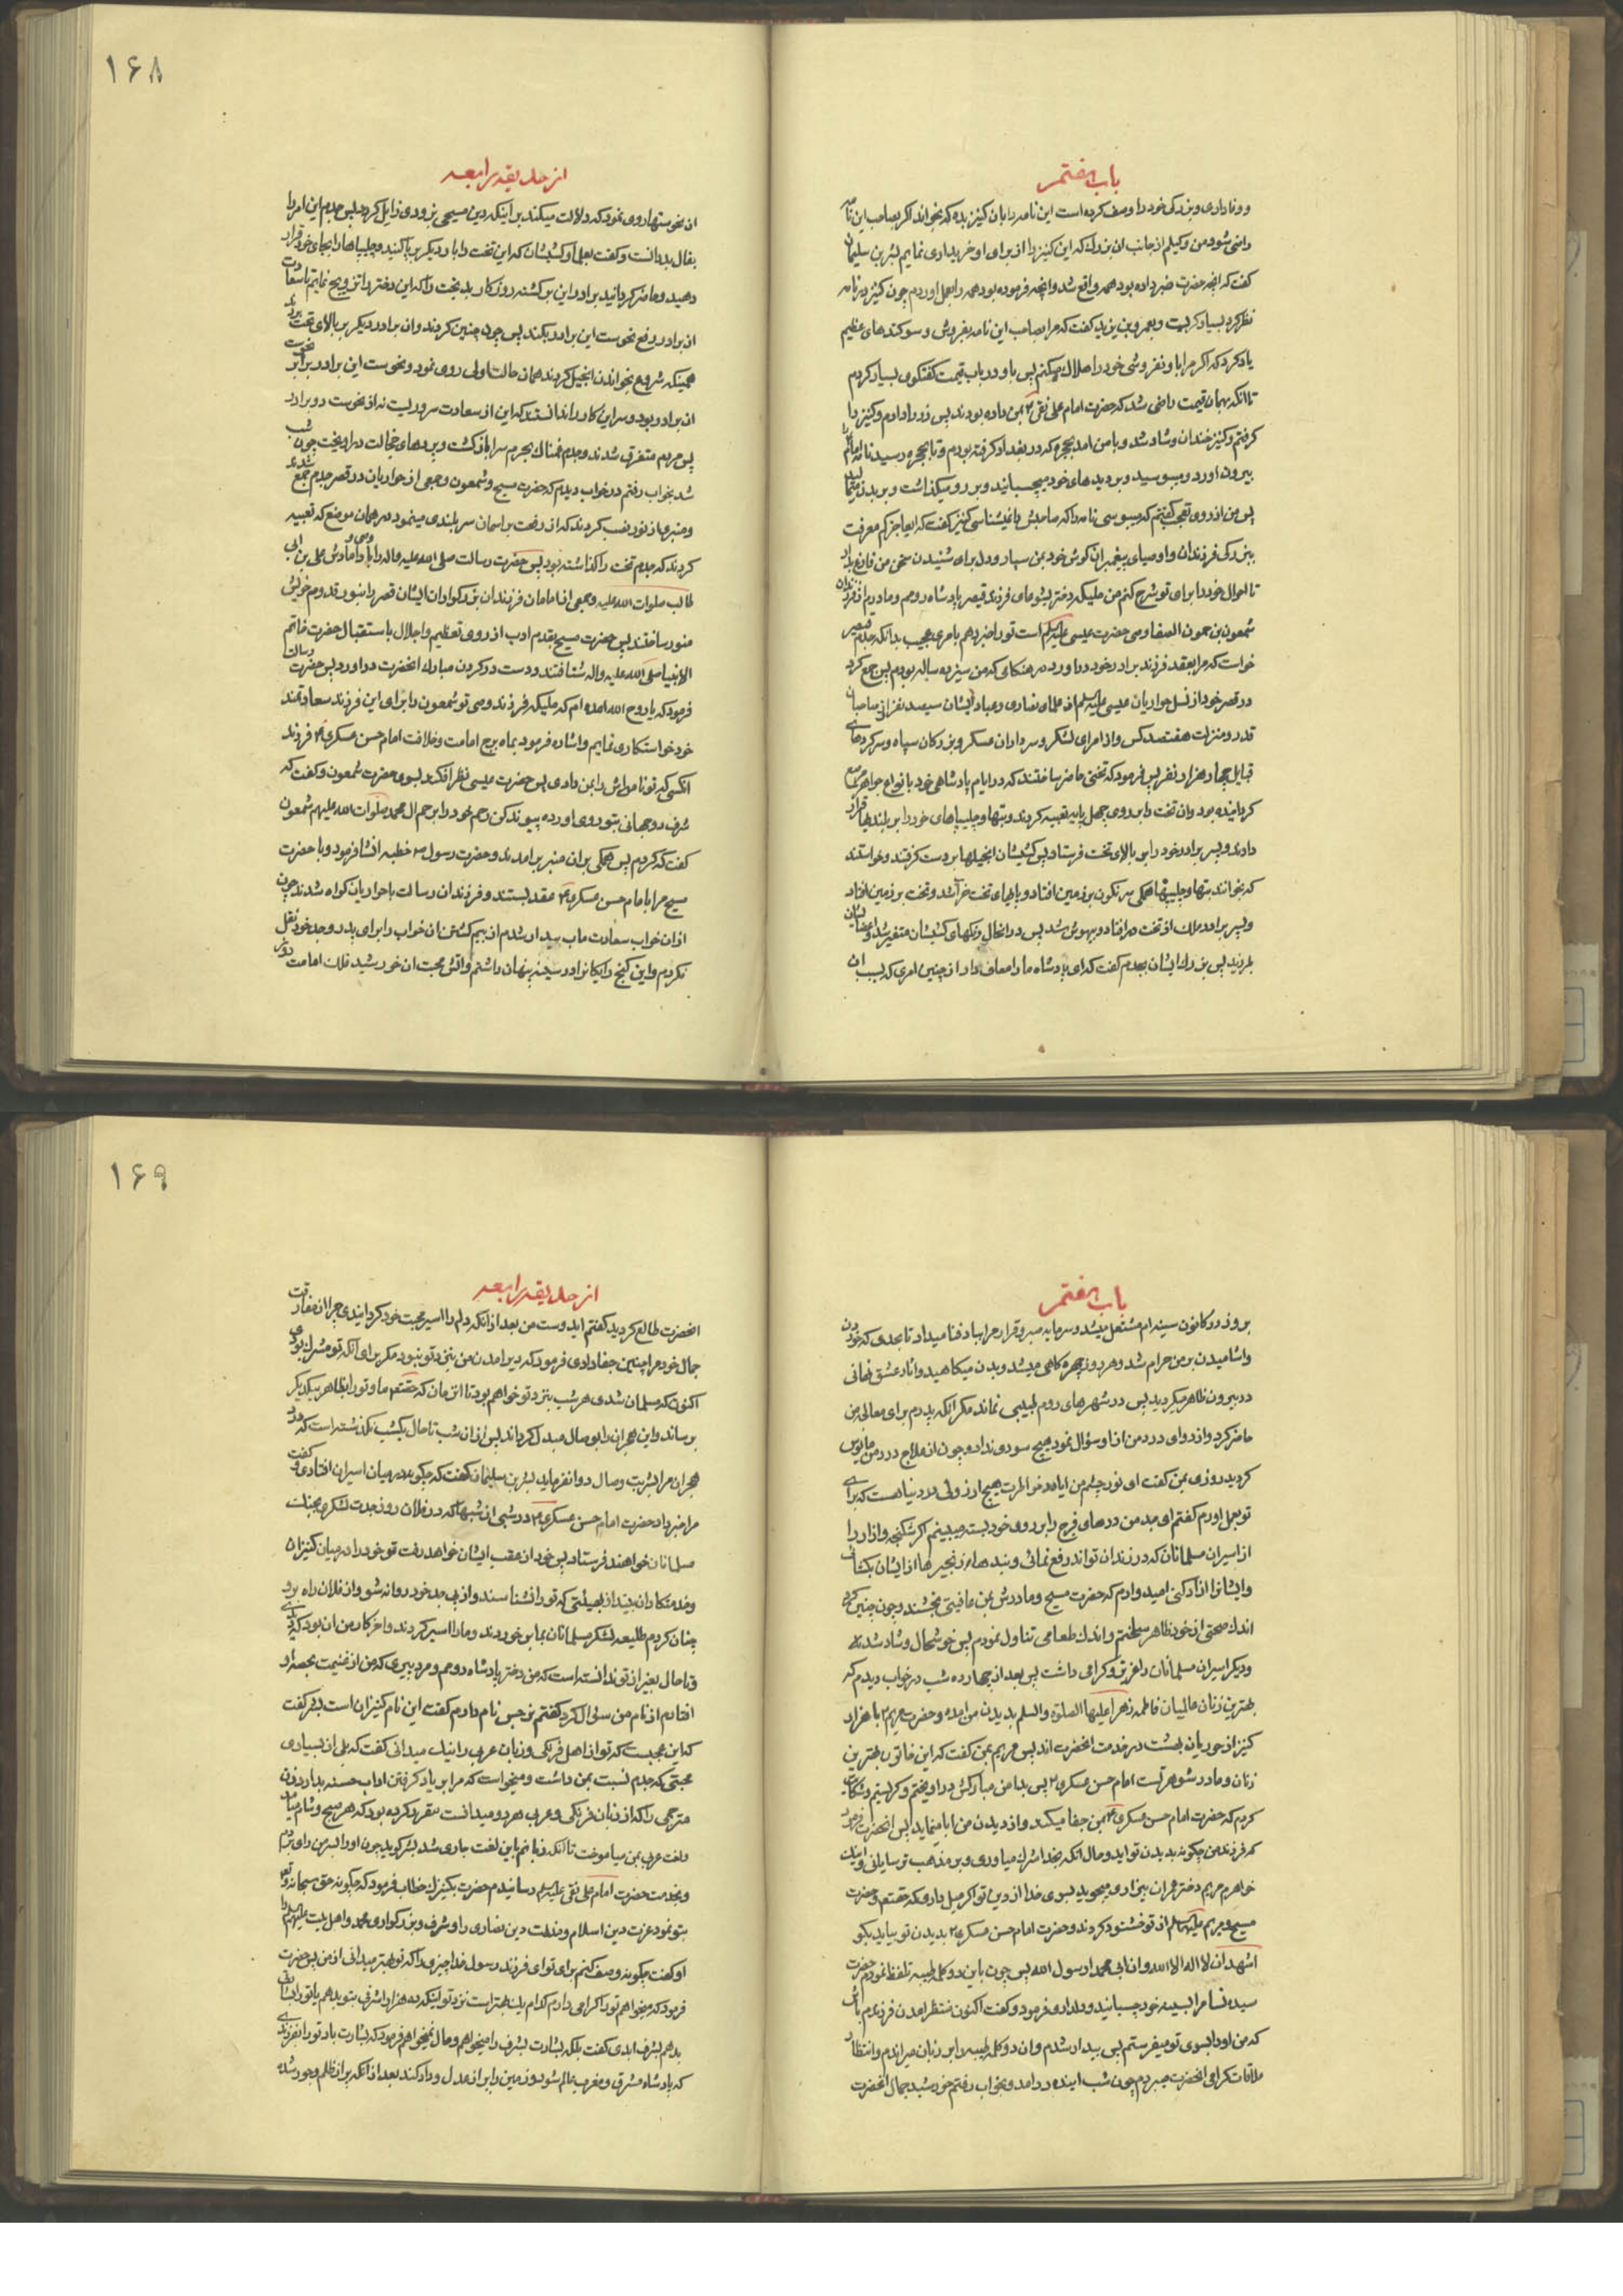 باب هفتم
و وفاداری و بزرکی خود را وصف کرده است این نامه را بان کنیز بده که بخواند اکر بصاحب این نامه
راضی شود من وکیلم از جانب ان بزرك که این کنیز را از برای او خریداری نمایم بشر بن سلیمان
کفت که انچه حضرت خبر داده بود همه واقع شد و انچه فرموده بود همه را بعمل اوردم چون کنیز در نامه
نظر کرد بسیار کریست و بعمرو بن یزید کفت که مرا بصاحب این نامه بفروش و سوکندهای عظیم
یاد کرد که اکر مرا باو نفروشی خود را هلاك میکنم پس باو در باب قیمت کفتکوی بسیار کردم
تا انکه بهمان قیمت راضی شد که حضرت امام علی نقی ع بمن داده بودند پس زر را دادم و کنیز را
کرفتم و کنیز خندان و شاد شد و با من امد بحجره که در بغداد کرفته بودم و تا بحجره رسید نامه امام را
بیرون اورد و میبوسید و بر دیدهای خود میچسبانید و بر رو میکذاشت و بر بدن میمالید
پس من از روی تعجب کفتم که میبوسی نامه را که صاحبش را نمیشناسی کنیز کفت که ای عاجز کم معرفت
ببزرکی فرزندان و اوصیای پیغمبران کوش خود بمن سپار و دل برای شنیدن سخن من فارغ بدار
تا احوال خود را برای تو شرح کنم من ملیکه دختر یشوعای فرزند قیصر پادشاه رومم و مادرم از فرزندان
شمعون بن حمون الصفا وصی حضرت عیسی علیه السلم است تو را خبر دهم بامری عجیب بدانکه جدم قیصر
خواست که مرا بعقد فرزند برادر خود در اورد در هنکامی که من سیزده ساله بودم پس جمع کرد
در قصر خود از نسل حواریان عیسی علیه السلم از علمای نصاری و عباد ایشان سیصد نفر از صاحبان
قدر و منزلت هفتصد کس و از امرای لشکر و سرداران عسکر و بزرکان سپاه و سرکردهای
قبایل چهار هزار نفر پس فرمود که تختی حاضر ساختند که در ایام پادشاهی خود بانواع جواهر مرصع
کردانیده بود و ان تخت را بر روی چهل پایه تعبیه کردند و بتها و چلیپاهای خود را بر بلندیها قرار
دادند و پسر برادر خود را بر بالای تخت فرستاد پس کشیشان انجیلها بر دست کرفتند و خواستند
که بخوانند بتها و چلیپاها همکی سرنکون بر زمین افتاد و پایهای تخت خراب شد و تخت بر زمین افتاد
و پسر برادر ملك از تخت در افتاد و بیهوش شد پس در انحال رنکهای کشیشان متغیر شد و اعضایشان
بلرزید پس بزرك ایشان بجدم کفت که ای پادشاه ما را معاف دار از چنین امری که بسبب ان
۱۶۸
از حدیقه رابعه
ان نحوستها روی نمود که دلالت میکند بر اینکه دین مسیحی بزودی زایل کردد پس جدم این امر را
بفال بد دانست و کفت بعلما و کشیشان که این تخت را بار دیکر برپا کنید و چلیپاها را بجای خود قرار
دهید و حاضر کردانید برادر این برکشته روزکار بدبخت را که این دختر را تزویج نمایم تا سعادت
ان برادر رفع نحوست این برادر بکند پس چون چنین کردند و ان برادر دیکر بر بالای تخت بردند
همینکه شروع بخواندن انجیل کردند همان حالت اولی روی نمود و نحوست این برادر برابر نحوست
ان برادر بود و سر این کار را ندانستند که این از سعادت سروریست نه از نحوست دو برادر
پس مردم متفرق شدند و جدم غمناك بحرم سرا بازکشت و پردهای خجالت در اویخت چون شب
شد بخواب رفتم در خواب دیدم که حضرت مسیح و شمعون و جمعی از حواریان در قصر جدم جمع شدند
و منبری از نور نصب کردند که از رفعت بر اسمان سربلندی مینمود در همان موضع که تعبیه
کردند که جدم تخت را کذاشته بود پس حضرت رسالت صلی الله علیه واله با وصی و دامادش علی بن ابی
طالب صلوات الله علیه و جمعی از امامان فرزندان بزرکواران ایشان قصر را بنور قدوم خویش
منور ساختند پس حضرت مسیح بقدم ادب از روی تعظیم و اجلال باستقبال حضرت خاتم
الانبیا صلی الله علیه واله شتافتند و دست در کردن مبارك انحضرت در اورد پس حضرت رسالت
فرمود که یا روح الله امده ام که ملیکه فرزند وصی تو شمعون را برای این فرزند سعادتمند
خود خواستکاری نمایم و اشاره فرمود بماه برج امامت و خلافت امام حسن عسکری ع فرزند
انکسی که تو نامه اش را بمن دادی پس حضرت عیسی نظر افکند بسوی حضرت شمعون و کفت که
شرف دو جهانی بتو روی اورده پیوند کن رحم خود را برحم ال محمد صلوات الله علیهم شمعون
کفت که کردم پس همکی بران منبر برامدند و حضرت رسول ص خطبه انشا فرمود و با حضرت
مسیح مرا بامام حسن عسکری ع عقد بستند و فرزندان رسالت با حواریان کواه شدند چون
از ان خواب سعادت ماب بیدار شدم از بیم کشتن ان خواب را برای پدر و جد خود نقل
نکردم و این کنج رایکان را در سینه پنهان داشتم و اتش محبت ان خورشید فلك امامت روز
باب هفتم
بروز در کانون سینه ام مشتعل میشد و سرمایه صبر و قرار مرا بباد فنا میداد تا بحدی که خوردن
و اشامیدن بر من حرام شد و هر روز چهره کاهی میشد و بدن میکاهید و اثار عشق نهانی
در بیرون ظاهر میکردید پس در شهرهای روم طبیبی نماند مکر انکه پدرم برای معالجه من
حاضر کرد و از دوای درد من از او سؤال نمود هیچ سودی نداد و چون از علاج درد من مایوس
کردید روزی بمن کفت ای نور چشم من ایا در خاطرت هیچ ارزوئی در دنیا هست که برای
تو بعمل اورم کفتم ای جد من درهای فرج را بر روی خود بسته میبینم اکر شکنجه و ازار را
از اسیران مسلمانان که در زندان تواند رفع نمائی و بندها و زنجیرها از ایشان بکشائی
و ایشانرا ازاد کنی امیدوارم که حضرت مسیح و مادرش بمن عافیتی بخشند و چون چنین کرد
اندك صحتی از خود ظاهر ساختم و اندك طعامی تناول نمودم پس خوشحال و شاد شد
و دیکر اسیران مسلمانان را عزیز و کرامی داشت پس بعد از چهارده شب در خواب دیدم که
بهترین زنان عالمیان فاطمه زهرا علیها الصلوة والسلم بدیدن من امد و حضرت مریم ع با هزار
کنیز از حوریان بهشت در خدمت انحضرت اند پس مریم بمن کفت که این خاتون بهترین
زنان و مادر شوهر تست امام حسن عسکری ع پس بدامن مبارکش در اویختم و کریستم و شکایت
کردم که حضرت امام حسن عسکری ع بمن جفا میکند و از دیدن من ابا مینماید پس انحضرت فرمود
که فرزند من چکونه بدیدن تو اید و حال انکه بخدا شرك میاوری و بر مذهب ترسایانی و اینك
خواهرم مریم دختر عمران بیزاری میجوید بسوی خدا از دین تو اکر میل داری که حقتعم و حضرت
مسیح و مریم علیهم السلم از تو خشنود کردند و حضرت امام حسن عسکری ع بدیدن تو بیاید بکو
اشهد ان لا اله الا الله و ان ابی محمدا رسول الله پس چون باین دو کلمه طیبه تلفظ نمودم حضرت
سیده نسا مرا بسینه خود چسبانید و دلداری فرمود و کفت اکنون منتظر امدن فرزندم باش
که من او را بسوی تو میفرستم پس بیدار شدم و ان دو کلمه طیبه را بر زبان میراندم و انتظار
ملاقات کرامی انحضرت میبردم چون شب اینده در امد و بخواب رفتم خورشید جمال انحضرت
۱۶۹
از حدیقه رابعه
انحضرت طالع کردید کفتم ایدوست من بعد از انکه دلم را اسیر محبت خود کردانیدی چرا از مفارقت
جمال خود مرا چنین جفا دادی فرمود که دیر امدن من بنزد تو نبود مکر برای انکه تو مشرك بودی
اکنون که مسلمان شدی هر شب بنزد تو خواهم بود تا انزمان که حقتعم ما و تو را بظاهر بیکدیکر
برساند و این هجران را بوصال مبدل کرداند پس از ان شب تا حال یکشب نکذشته است که درد
هجران مرا بشربت وصال دوا نفرماید بشر بن سلیمان کفت که چکونه در میان اسیران افتادی و کفت
مرا خبر داد حضرت امام حسن عسکری ع در شبی از شبها که در فلان روز جدت لشکری بجنك
مسلمانان خواهند فرستاد پس خود از عقب ایشان خواهد رفت تو خود را در میان کنیزان
و خدمتکاران بینداز بهیئتی که تو را نشناسند و از پی جد خود روانه شو و از فلان راه برو
چنان کردم طلیعه لشکر مسلمانان بما بر خوردند و ما را اسیر کردند و اخر کار من ان بود که دیدی
و تا حال بغیر از تو ندانسته است که من دختر پادشاه رومم و مرد پیری که من از غنیمت بحصه او
افتادم از نام من سؤال کرد کفتم نرجس نام دارم کفت این نام کنیزان است بشر کفت
که این عجیبست که تو از اهل فرنکی و زبان عربی را نیك میدانی کفت که بلی از بسیاری
محبتی که جدم نسبت بمن داشت و میخواست که مرا بر یاد کرفتن اداب حسنه بدارد زن
مترجمی را که از زبان فرنکی و عربی هر دو میدانست مقرر کرده بود که هر صبح و شام میامد
و لغت عربی بمن میاموخت تا انکه زبانم باین لغت جاری شد بشر کوید چون او را بسر من رای بردم
و بخدمت حضرت امام علی نقی علیه السلم رسانیدم حضرت بکنیزك خطاب فرمود که چکونه حق سبحانه و تعم
بتو نمود عزت دین اسلام و مذلت دین نصاری را و شرف و بزرکواری محمد و اهل بیت علیهم السلم را
او کفت چکونه وصف کنم برای تو ای فرزند رسول خدا چیزی را که تو بهتر میدانی از من پس حضرت
فرمود که میخواهم تو را کرامی دارم کدام یك بهتر است نزد تو اینکه ده هزار اشرفی بتو بدهم یا تو را بشارتی
بدهم بشرف ابدی کفت بلکه بشارت بشرف را میخواهم و مال نمیخواهم فرمود که بشارت باد تو را بفرزندی
که پادشاه مشرق و مغرب عالم شود و زمین را پر از عدل و داد کند بعد از انکه پر از ظلم و جور شده